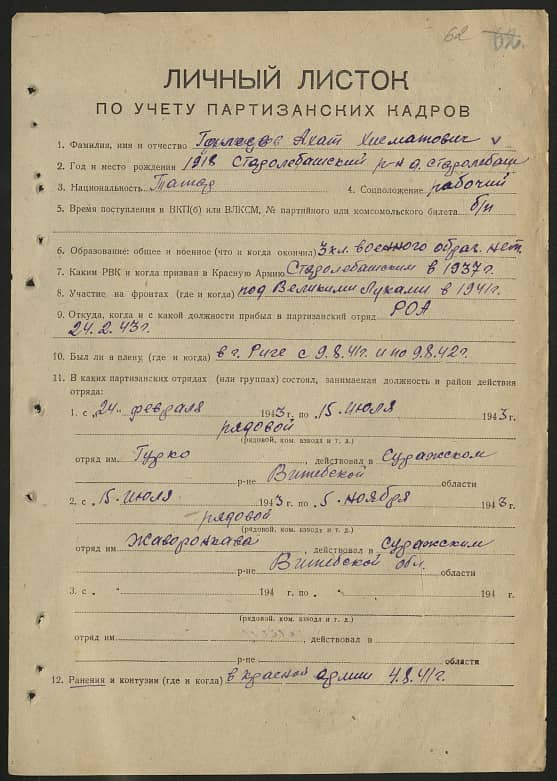 62 62.
ЛИЧНЫЙ ЛИСТОК
ПО УЧЕТУ ПАРТИЗАНСКИХ КАДРОВ
1. Фамилия, имя и отчество Ахат Хисматович v
2. Год и место рождения 1918 Старолебашский р-н д. Старолебаш
3. Национальность Татар 4. Соцположение рабочий
5. Время поступления в ВКП(б) или ВЛКСМ, № партийного или комсомольского билета б/п
6. Образование: общее и военное (что и когда окончил) 3 кл. военного образ. нет.
7. Каким РВК и когда призван в Красную Армию Старолебашским в 1937 г.
8. Участие на фронтах (где и когда) под Великими Луками в 1941 г.
9. Откуда, когда и с какой должности прибыл в партизанский отряд РОА
24.2.43 г.
10. Был ли в плену, (где и когда) в г. Риге с 9.8.41 г. и по 9.8.42 г.
11. В каких партизанских отрядах (или группах) состоял, занимаемая должность и район действия
отряда:
1. с „24“ февраля 1943 г. по 15 июля 1943 г.
рядовой
(рядовой, ком. взвода и т. д.)
отряд им. Гудко, действовал в Суражском
р-не Витебской области
2. с 15 июля 1943 г. по 5 ноября 1943 г.
рядовой
(рядовой, ком. взвода и т. д.)
отряд им. Жаворонкава, действовал в Суражским
р-не Витебской обл. области
3. с „ “ 194 г. по „ “ 194 г.
(рядовой, ком. взвода и т. д.)
отряд им. , действовал в
р-не области
12. Ранения и контузии (где и когда) в красной армии 4.8.41 г.